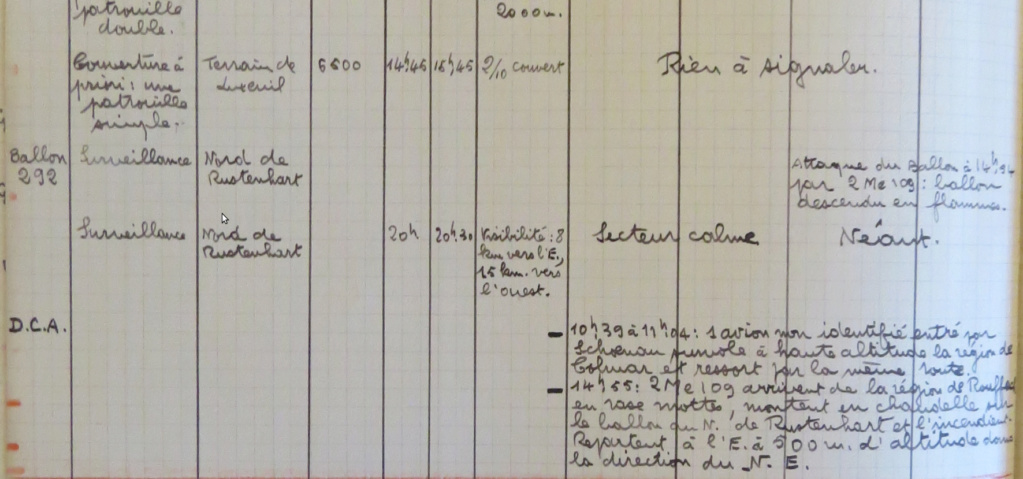 patrouille
double.
2000m.
Couverture à
priori : une
patrouille
simple.
Terrain de
Luxeuil
6500
14h45
15h45
2/10 couvert
Rien à signaler.
Ballon
292
Surveillance
Nord de
Rustenhart
Attaque du Ballon à
par 2 Me 109 : ballon
descendu en flammes.
Surveillance
Nord de
Rustenhart
20h
20h.30
Visibilité : 8
km vers l'E,
15 km. vers
l'ouest.
Secteur calme
Néant.
D.C.A.
– 10h39 à 11h04 : 1 avion non identifié entré par
Schoenau survole à haute altitude la région de
Colmar et ressort par la même route.
– 14h55 : 2 Me 109 arrivent de la région de
en rase mottes, montent en chandelle sur
le ballon du N. de Rustenhart et l'incendient.
Repartent à l'E. à 500 m. d'altitude dans
la direction du N. E.